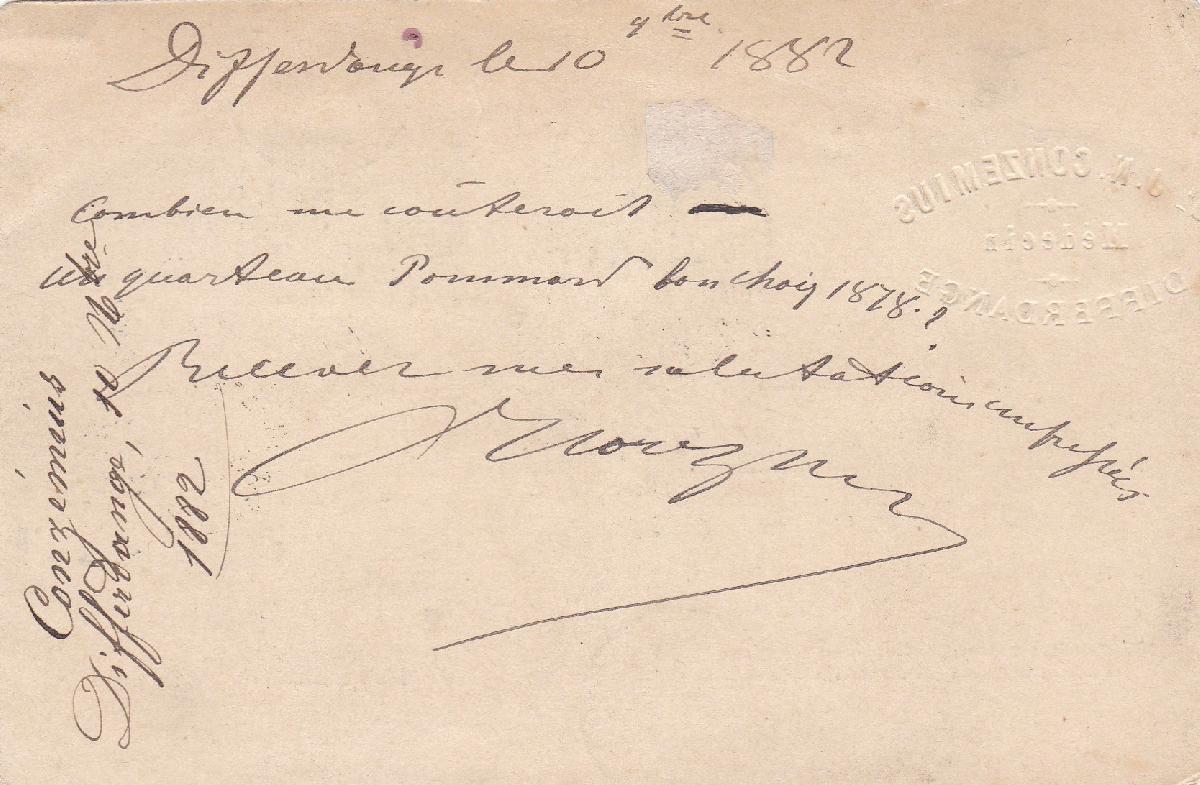 Differdange le 10 9bre 1882
Combien me coûterait —
un quarteau Pommard bon choix 1878.?
Recevez mes salutations empressées
J. N. CONZEMIUS
Médecin
DIFFERDANGE
Conzémius
Differdange, 10 Nbre
1882